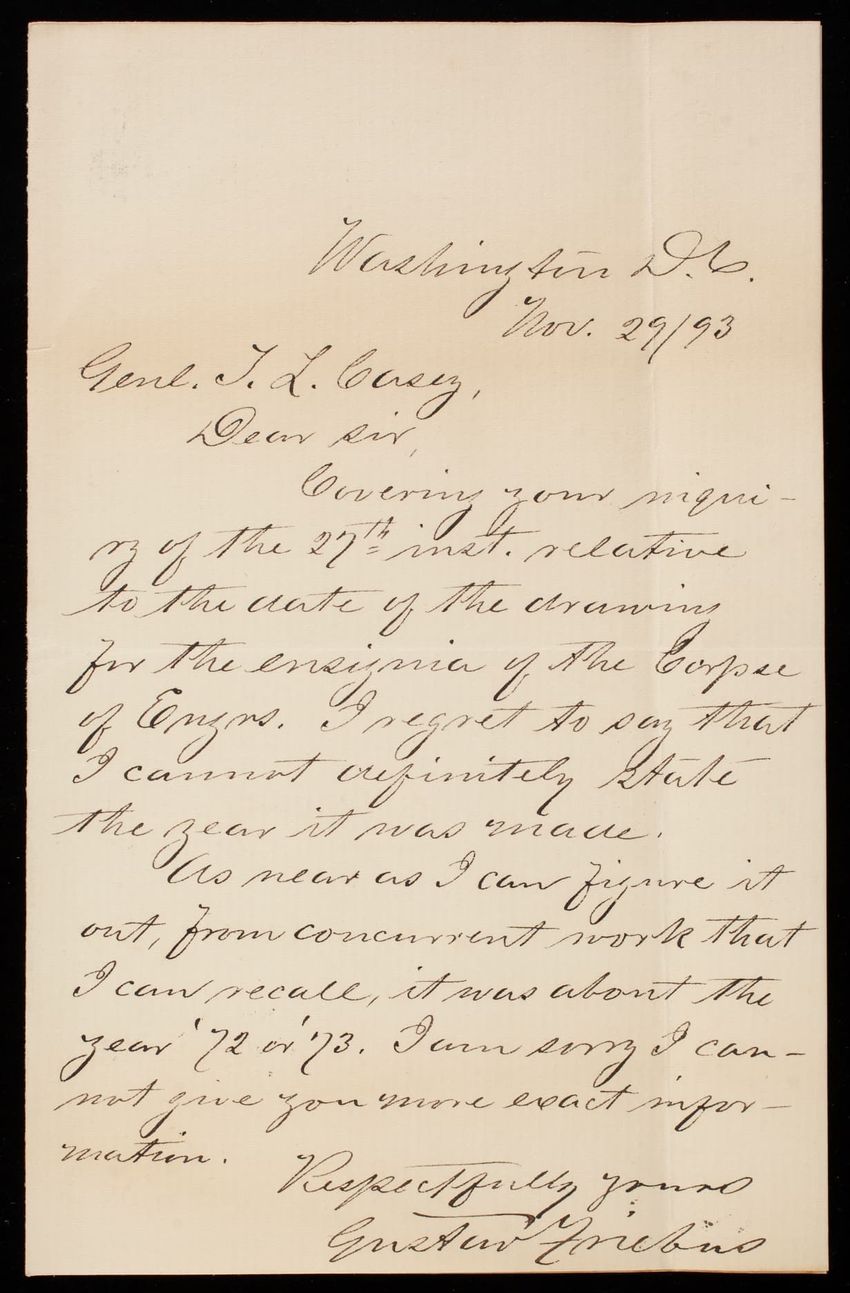 Washington D.C.
Nov. 29/93
Genl. T. L. Casey,
Dear sir,
Covering your inqui-
ry of the 27th inst. relative
to the date of the drawing
for the ensignia of the Corpse
of Engrs. I regret to say that
I cannot definitely state
the year it was made.
As near as I can figure it
out, from concurrent work that
I can recall, it was about the
year '72 or '73. I am sorry I can-
not give you more exact infor-
mation.
Respectfully yours
Gustav Friebus